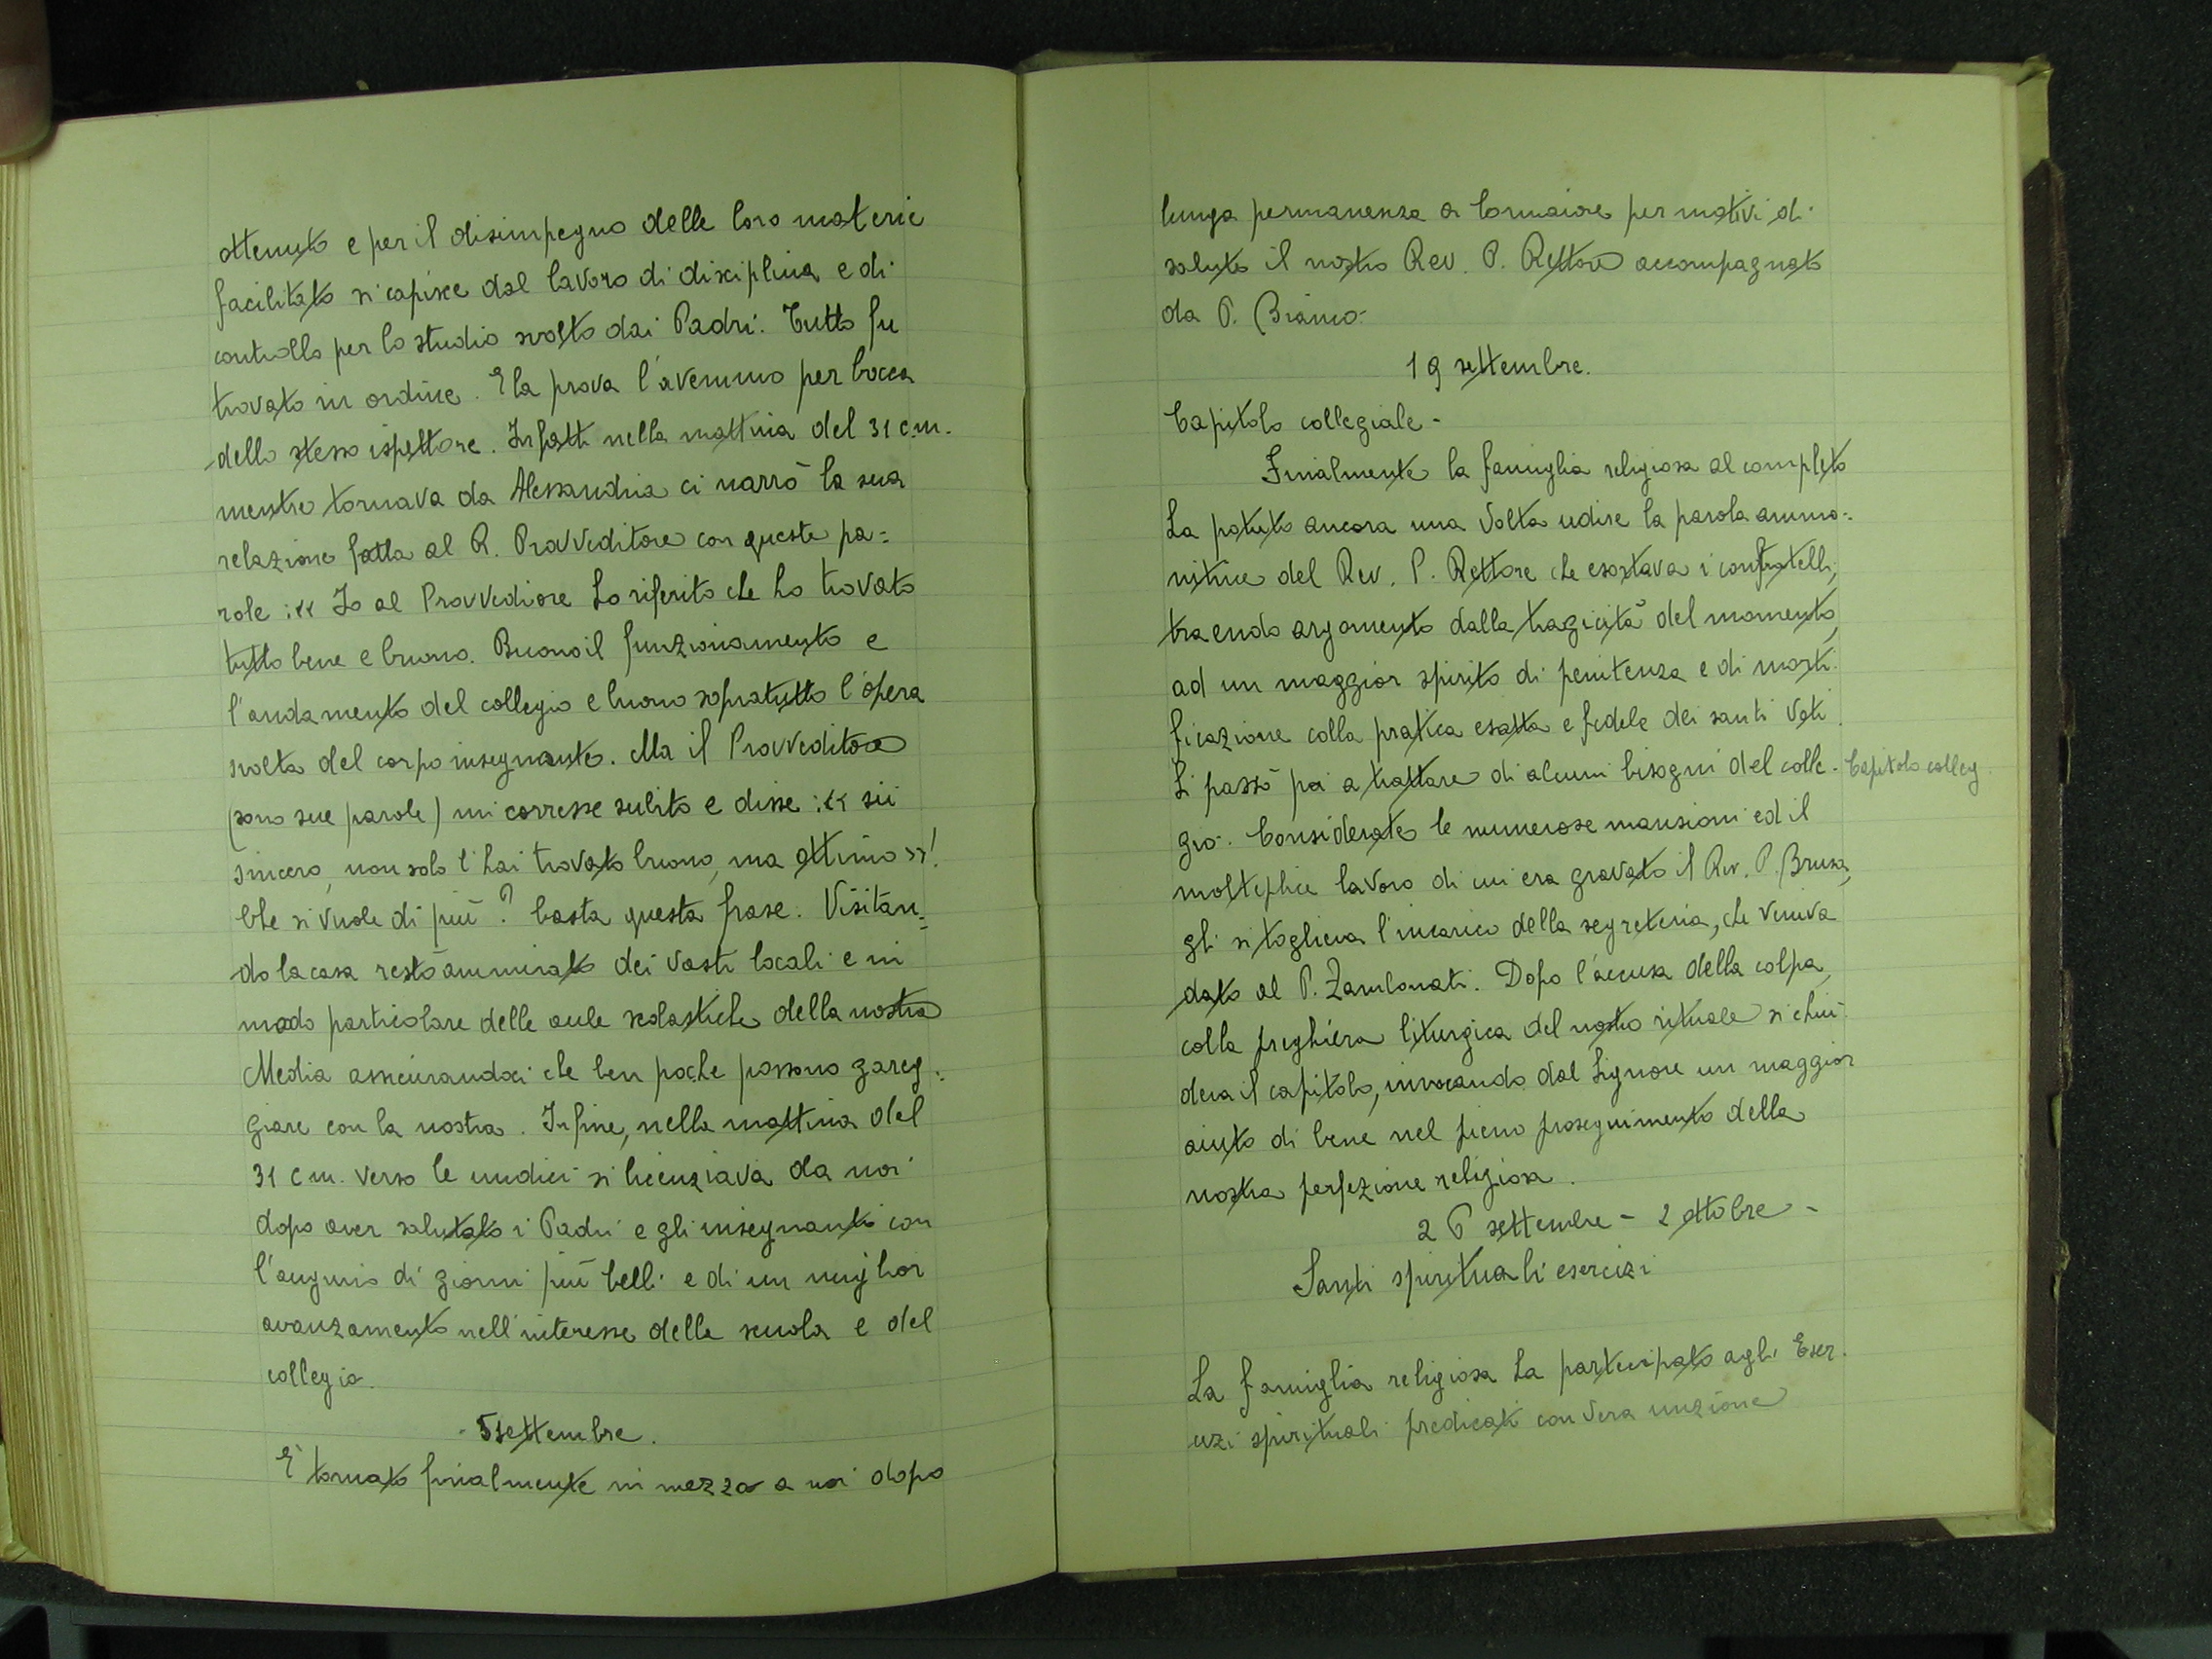 ottenuto e per il disimpegno delle loro materie
facilitato si capisce dal lavoro di disciplina e di
controllo per lo studio svolto dai Padri. Tutto fu
trovato in ordine. E la prova l'avemmo per bocca
dello stesso ispettore. Infatti nella mattina del 31 c.m.
mentre tornava da Alessandria ci narrò la sua
relazione fatta al R. Provveditore con queste pa=
role :<< Io al Provvediore ho riferito che ho trovato
tutto bene e buono. Buono il funzionamento e
l'andamento del collegio e buono sopratutto l'opera
svolta del corpo insegnante. Ma il Provveditore
(sono sue parole) mi corresse subito e disse :<< sii
sincero, non solo l'hai trovato buono, ma ottimo >>!
Che si vuole di più? basta questa frase. Visitan=
do la casa restò ammirato dei vasti locali e in
modo particolare delle aule scolastiche della nostra
Media assicurandoci che ben poche possono gareg=
giare con la nostra. Infine, nella mattina del
31 c m. verso le undici si licenziava da noi
dopo aver salutato i Padri e gli insegnanti con
l'augurio di giorni più belli e di un miglior
avanzamento nell'interesse della scuola e del
collegio.
- 5 settembre.
E' tornato finalmente in mezzo a noi dopo
lunga permanenza a Cormaiore per motivi di
salute il nostro Rev. P. Rettore accompagnato
da P. Bianco.
19 settembre.
Capitolo collegiale -
Finalmente la famiglia religiosa al completo
ha potuto ancora una volta udire la parola ammo-
nitrice del Rev. P. Rettore che esortava i confratelli,
traendo argomento dalla tragicità del momento,
ad un maggior spirito di penitenza e di morti-
ficazione colla pratica esatta e fedele dei santi Voti.
Si passò poi a trattare di alcuni bisogni del colle- Capitolo colleg.
gio. Considerate le numerose mansioni ed il
molteplice lavoro di cui era gravato il Rev. P. Brusa,
gli si toglieva l'incarico della segreteria, che veniva
dato al P. Zambonati. Dopo l'accusa della colpa,
colla preghiera liturgica del nostro rituale si chiu-
deva il capitolo, invocando dal Signore un maggior
aiuto di bene nel pieno proseguimento della
nostra perfezione religiosa.
26 settembre - 2 ottobre -
Santi spirituali esercizi
La famiglia religiosa ha partecipato agli Eser-
cizi spirituali predicati con vera unzione